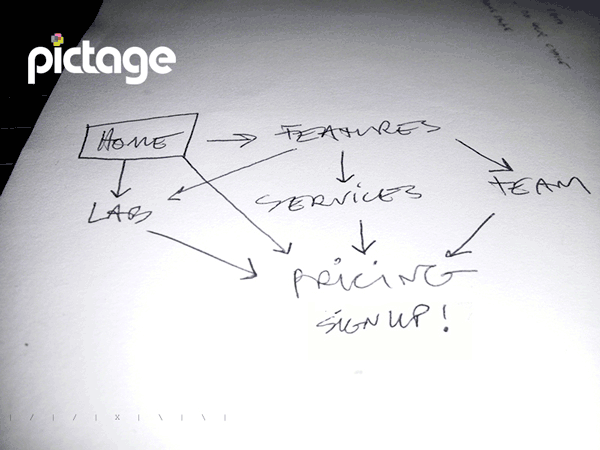 pictage
HOME
FEATURES
LAB
SERVICES
TEAM
PRICING
SIGN UP!
| / | / | X | \ | \ |